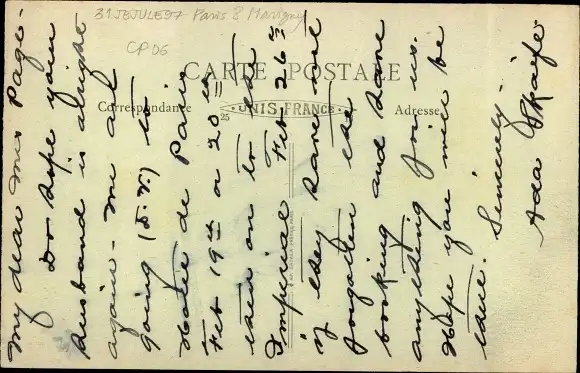 31JEJULE97 Paris 8 Marigny
CP 06
CARTE POSTALE
Correspondance
UNIS FRANCE
25
Adresse
My dear Mrs Page-
Do hope your
husband is alright
again - We are
going (D.V.) to
Hotel de Paris
Feb 19th or 20th
then on to the
Imperial Feb 26th
if they have not
forgotten the
booking and have
anything for us.
Hope you will be
there.
Sincerely-
Ada